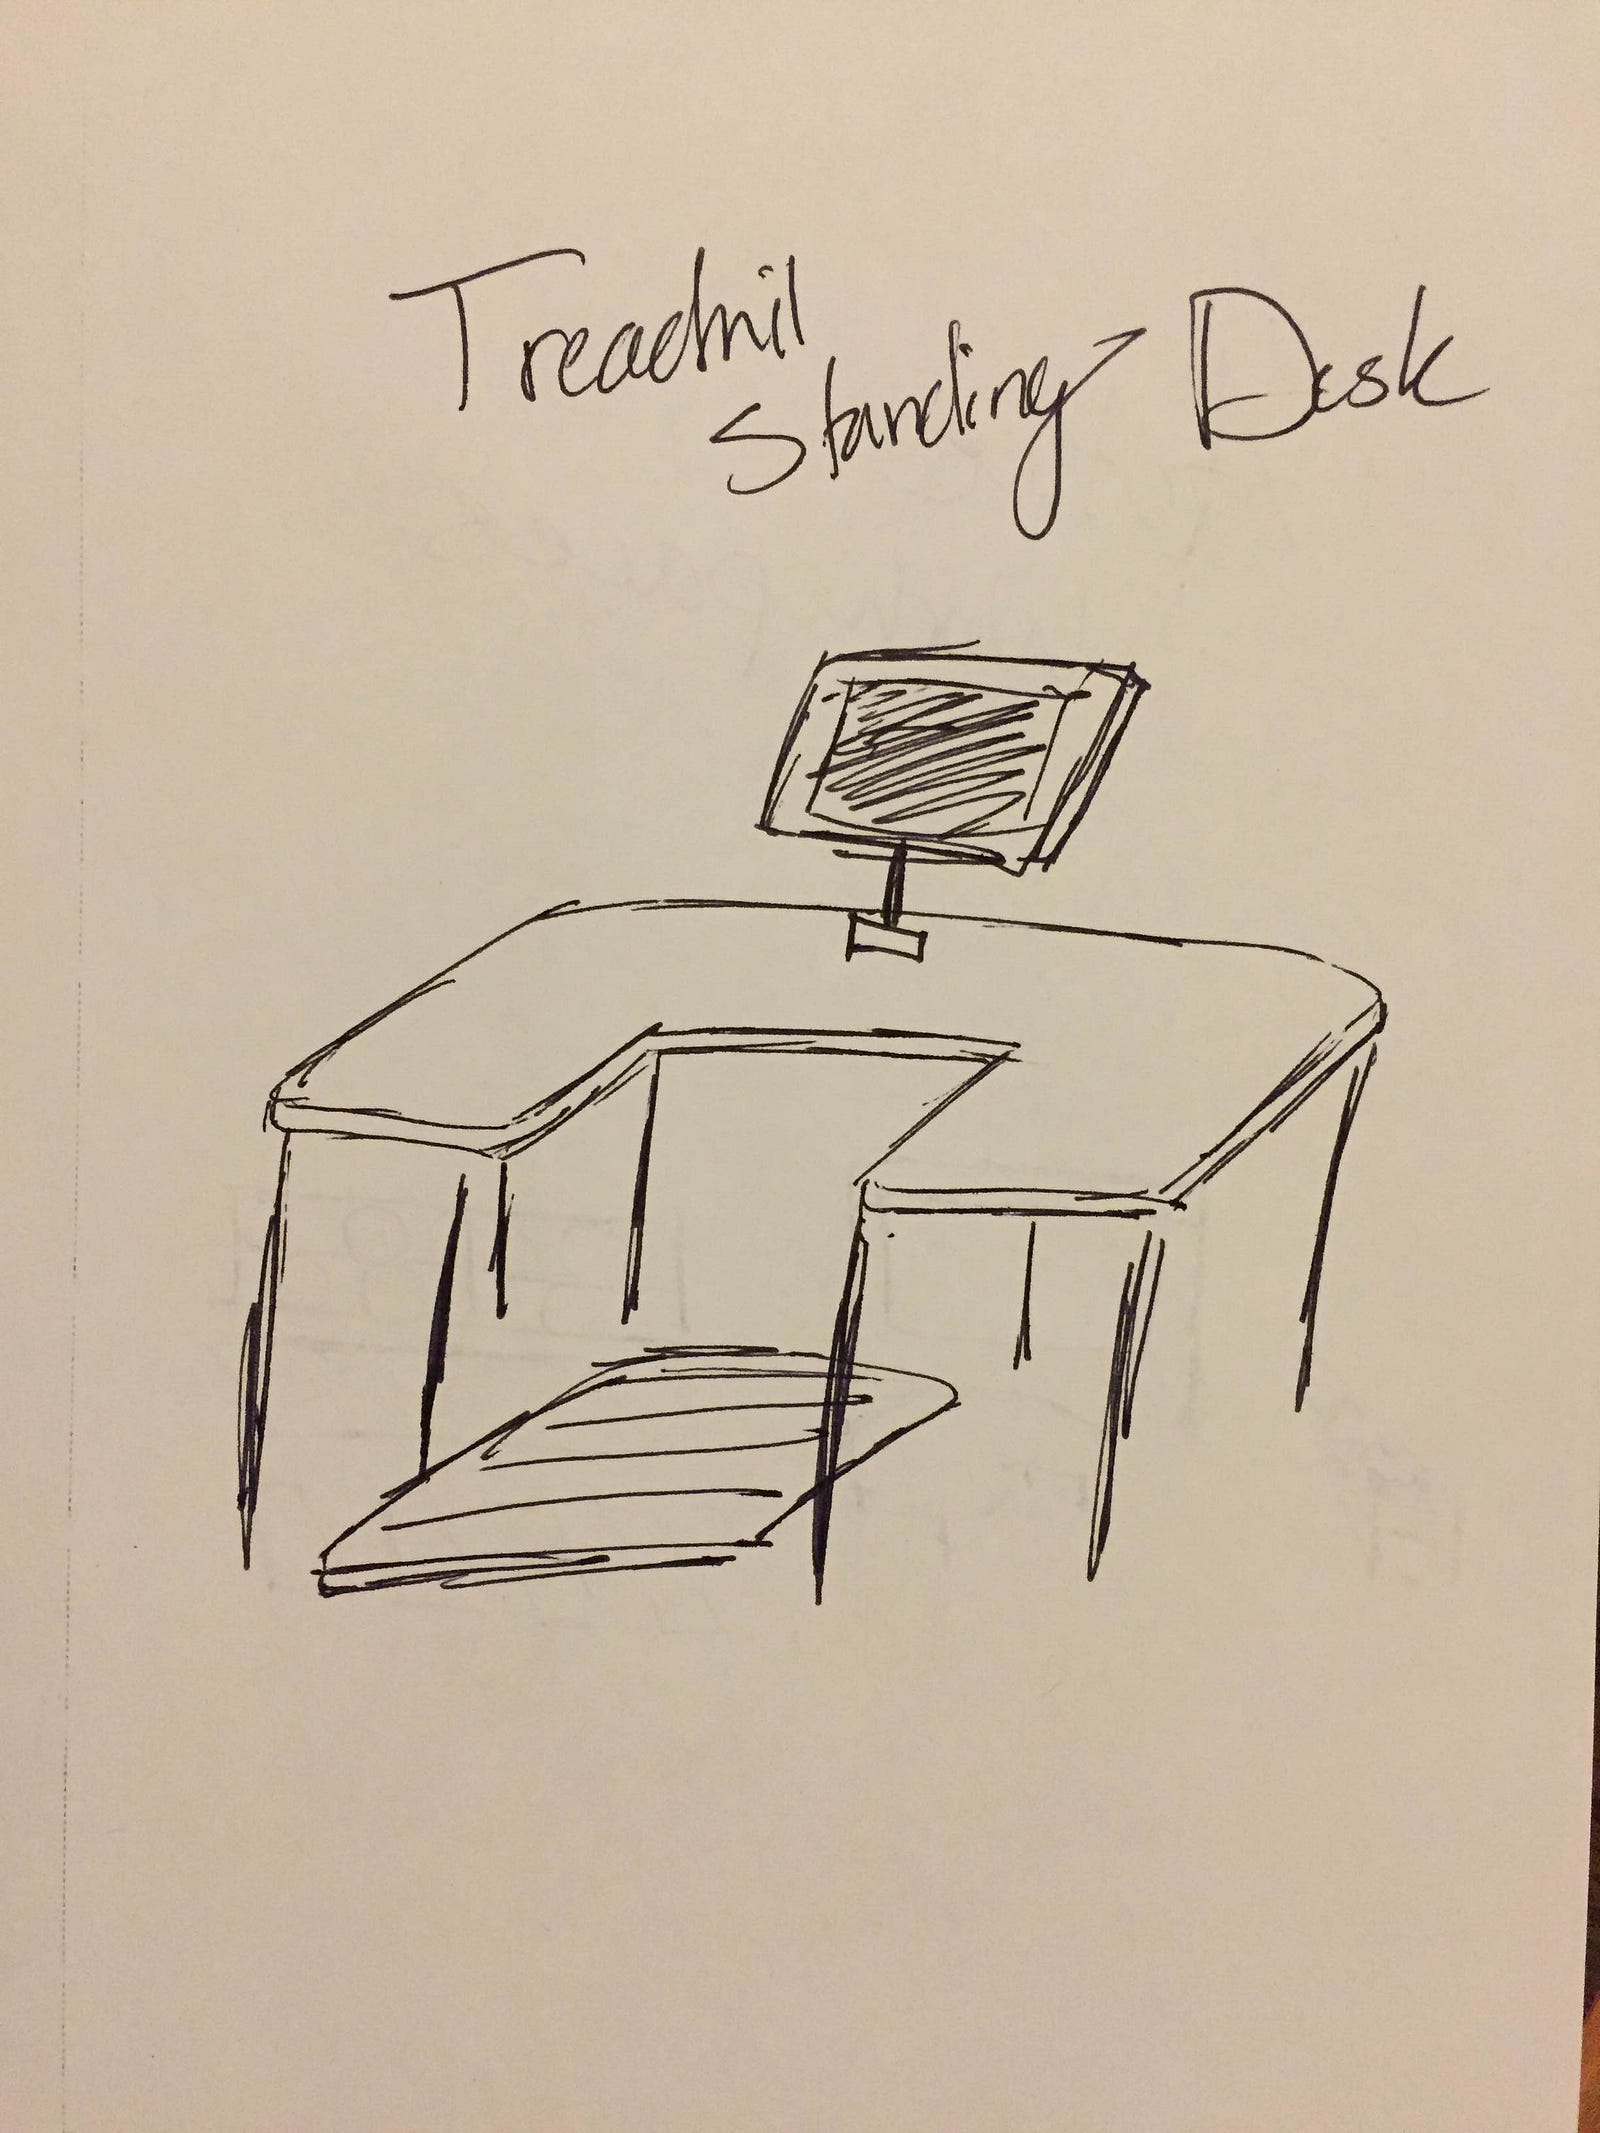 Treadmil
Standing Desk